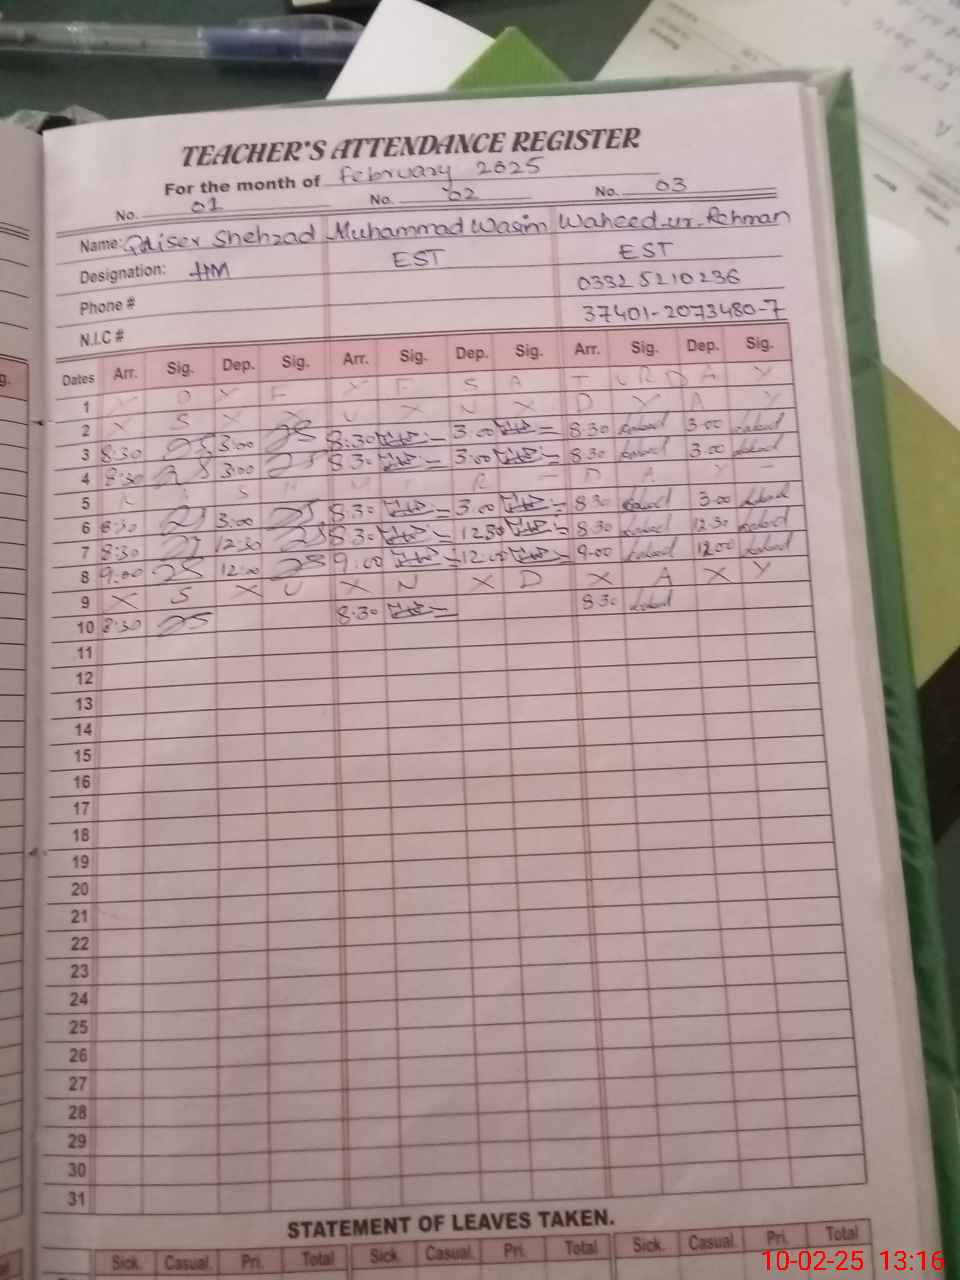 TEACHER'S ATTENDANCE REGISTER
For the month of February 2025
No. 01 No. 02 No. 03
Name: Qaiser Shehzad Muhammad Wasim Waheed-ur-Rehman
Designation: HM EST EST
Phone # 0332 5210236
N.I.C # 37401-2073480-7
Dates Arr. Sig. Dep. Sig. Arr. Sig. Dep. Sig. Arr. Sig. Dep. Sig.
1 S A T U R D A Y
2 X S X X U X N X D X A Y
3 8:30 3:00 8:30 3:00 8:30 3:00
4 8:30 3:00 8:30 3:00 8:30 3:00
5 K A S H M I R D A Y
6 8:30 3:00 8:30 3:00 8:30 3:00
7 8:30 12:30 8:30 12:30 8:30 12:30
8 9:00 12:00 9:00 12:00 9:00 12:00
9 X S X U X N X D X A X Y
10 8:30 8:30 8:30
11
12
13
14
15
16
17
18
19
20
21
22
23
24
25
26
27
28
29
30
31
STATEMENT OF LEAVES TAKEN.
Sick. Casual. Pri. Total Sick. Casual. Pri. Total Sick. Casual. Pri. Total
10-02-25 13:16